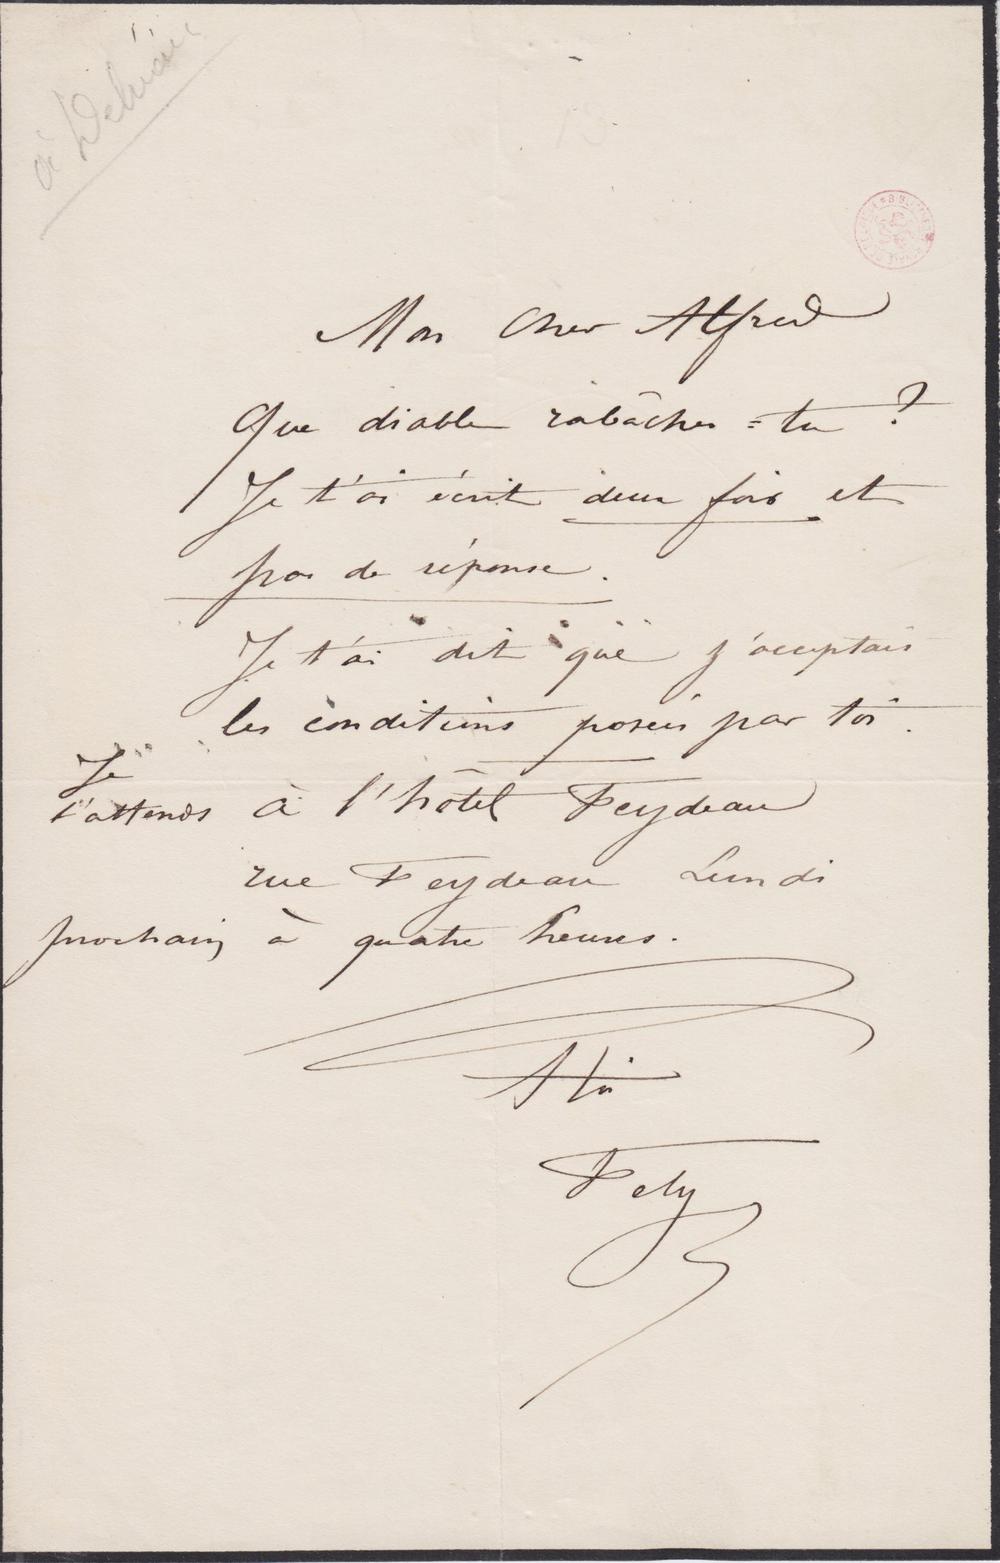 à Delvau
Mon Cher Alfred
Que diable rabâches-tu ?
Je t'ai écrit deux fois et
pas de réponse.
Je t'ai dit que j'acceptais
les conditions posées par toi.
Je
t'attends à l'hôtel Feydeau
rue Feydeau Lundi
prochain à quatre heures.
A toi
Fély